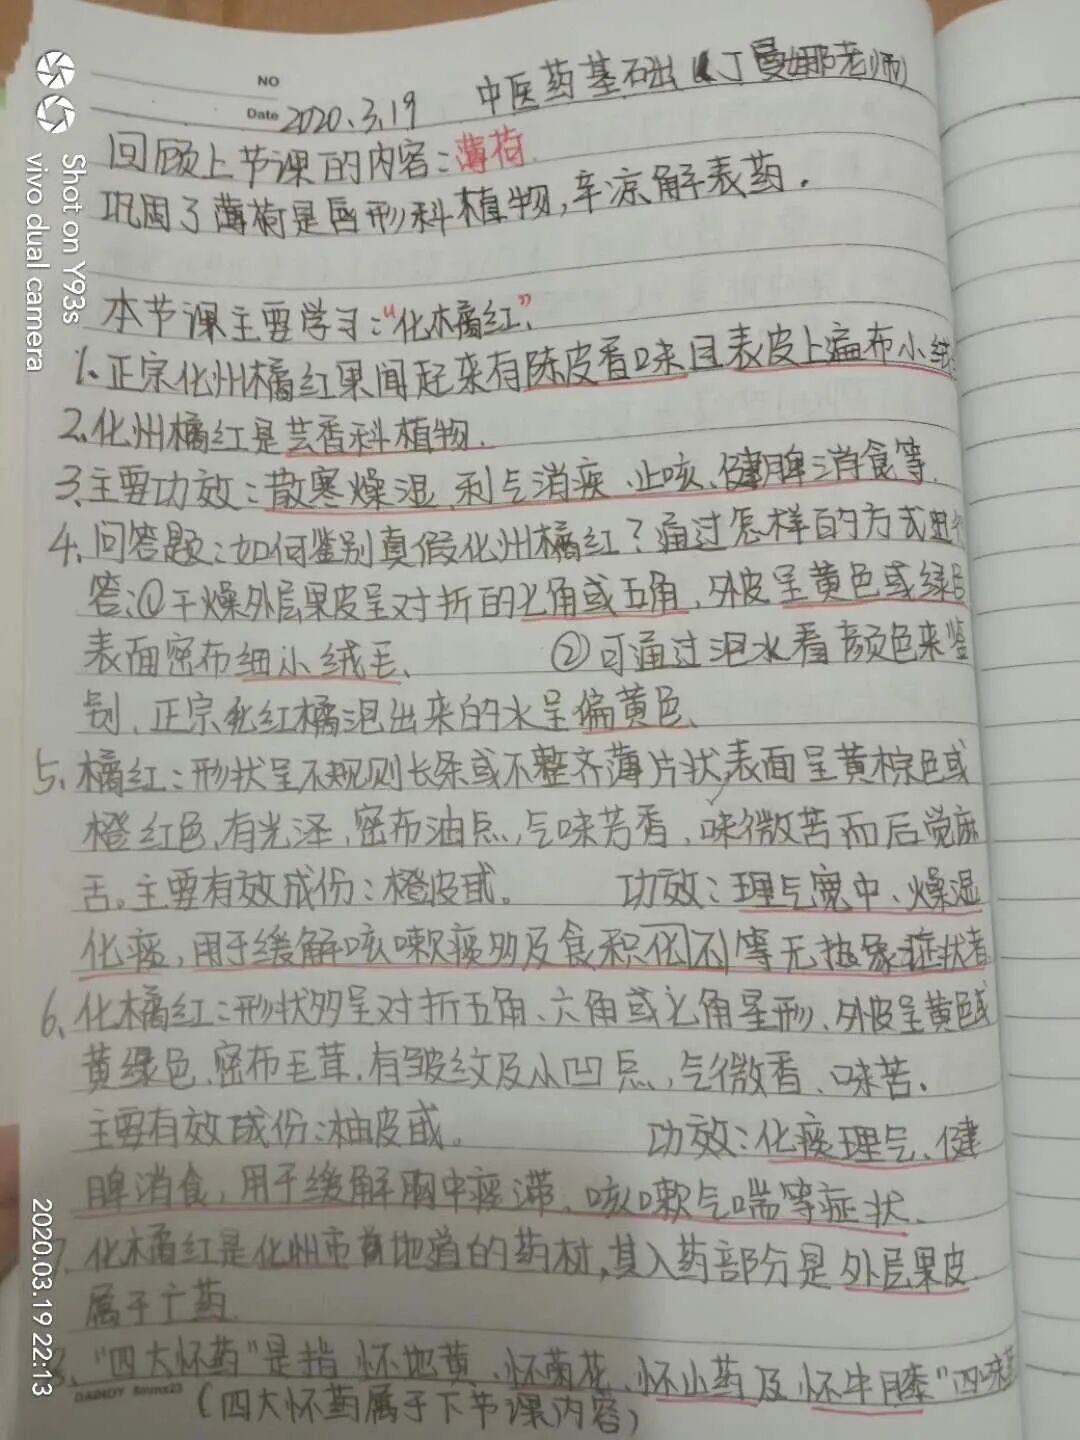 NO
Date 2020.3.19 中医药基础(丁曼娜老师)
回顾上节课的内容:薄荷.
巩固了薄荷是唇形科植物,辛凉解表药.
本节课主要学习:“化橘红”.
1.正宗化州橘红果闻起来有陈皮香味且表皮上遍布小绒
2.化州橘红是芸香科植物.
3.主要功效:散寒燥湿、利气消痰、止咳、健脾消食等.
4.问答题:如何鉴别真假化州橘红?通过怎样的方式进行
答:①干燥外层果皮呈对折的七角或五角,外皮呈黄色或绿色
表面密布细小绒毛、 ②可通过泡水看颜色来鉴
别,正宗化红橘泡出来的水呈偏黄色.
5.橘红:形状呈不规则长条或不整齐薄片状,表面呈黄棕色或
橙红色,有光泽,密布油点,气味芳香,味微苦而后觉麻
舌。主要有效成份:橙皮甙。 功效:理气宽中、燥湿
化痰,用于缓解咳嗽痰多及食积化不等无热象症状者
6.化橘红:形状多呈对折五角、六角或七角星形、外皮呈黄色或
黄绿色、密布毛茸,有皱纹及小凹点,气微香、味苦.
主要有效成份:柚皮甙。 功效:化痰理气、健
脾消食,用于缓解胸中痰滞、咳嗽气喘等症状.
7.化橘红是化州市地道的药材,其入药部分是外层果皮
属于广药.
8.“四大怀药”是指怀地黄、怀菊花、怀山药及怀牛膝“四味药
(四大怀药属于下节课内容)
DAINOY 8mmx23
Shot on Y93s
vivo dual camera
2020.03.19 22:13